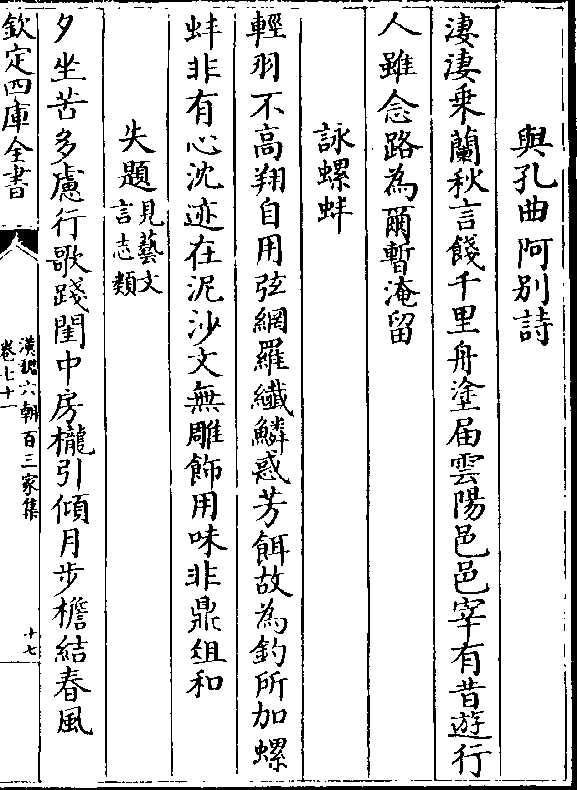 與孔曲阿別詩
淒淒乘蘭秋言餞千里舟塗届雲陽邑邑宰有昔遊行
人雖念路為爾暫淹留
詠螺蚌
輕羽不高翔自用弦網羅纎鱗惑芳餌故為釣所加螺
蚌非有心沈迹在泥沙文無雕飾用味非鼎俎和
失題見藝文言志類
夕坐苦多慮行歌踐閨中房櫳引傾月步檐結春風
欽定四庫全書
漢魏六朝百三家集
卷七十一
十七